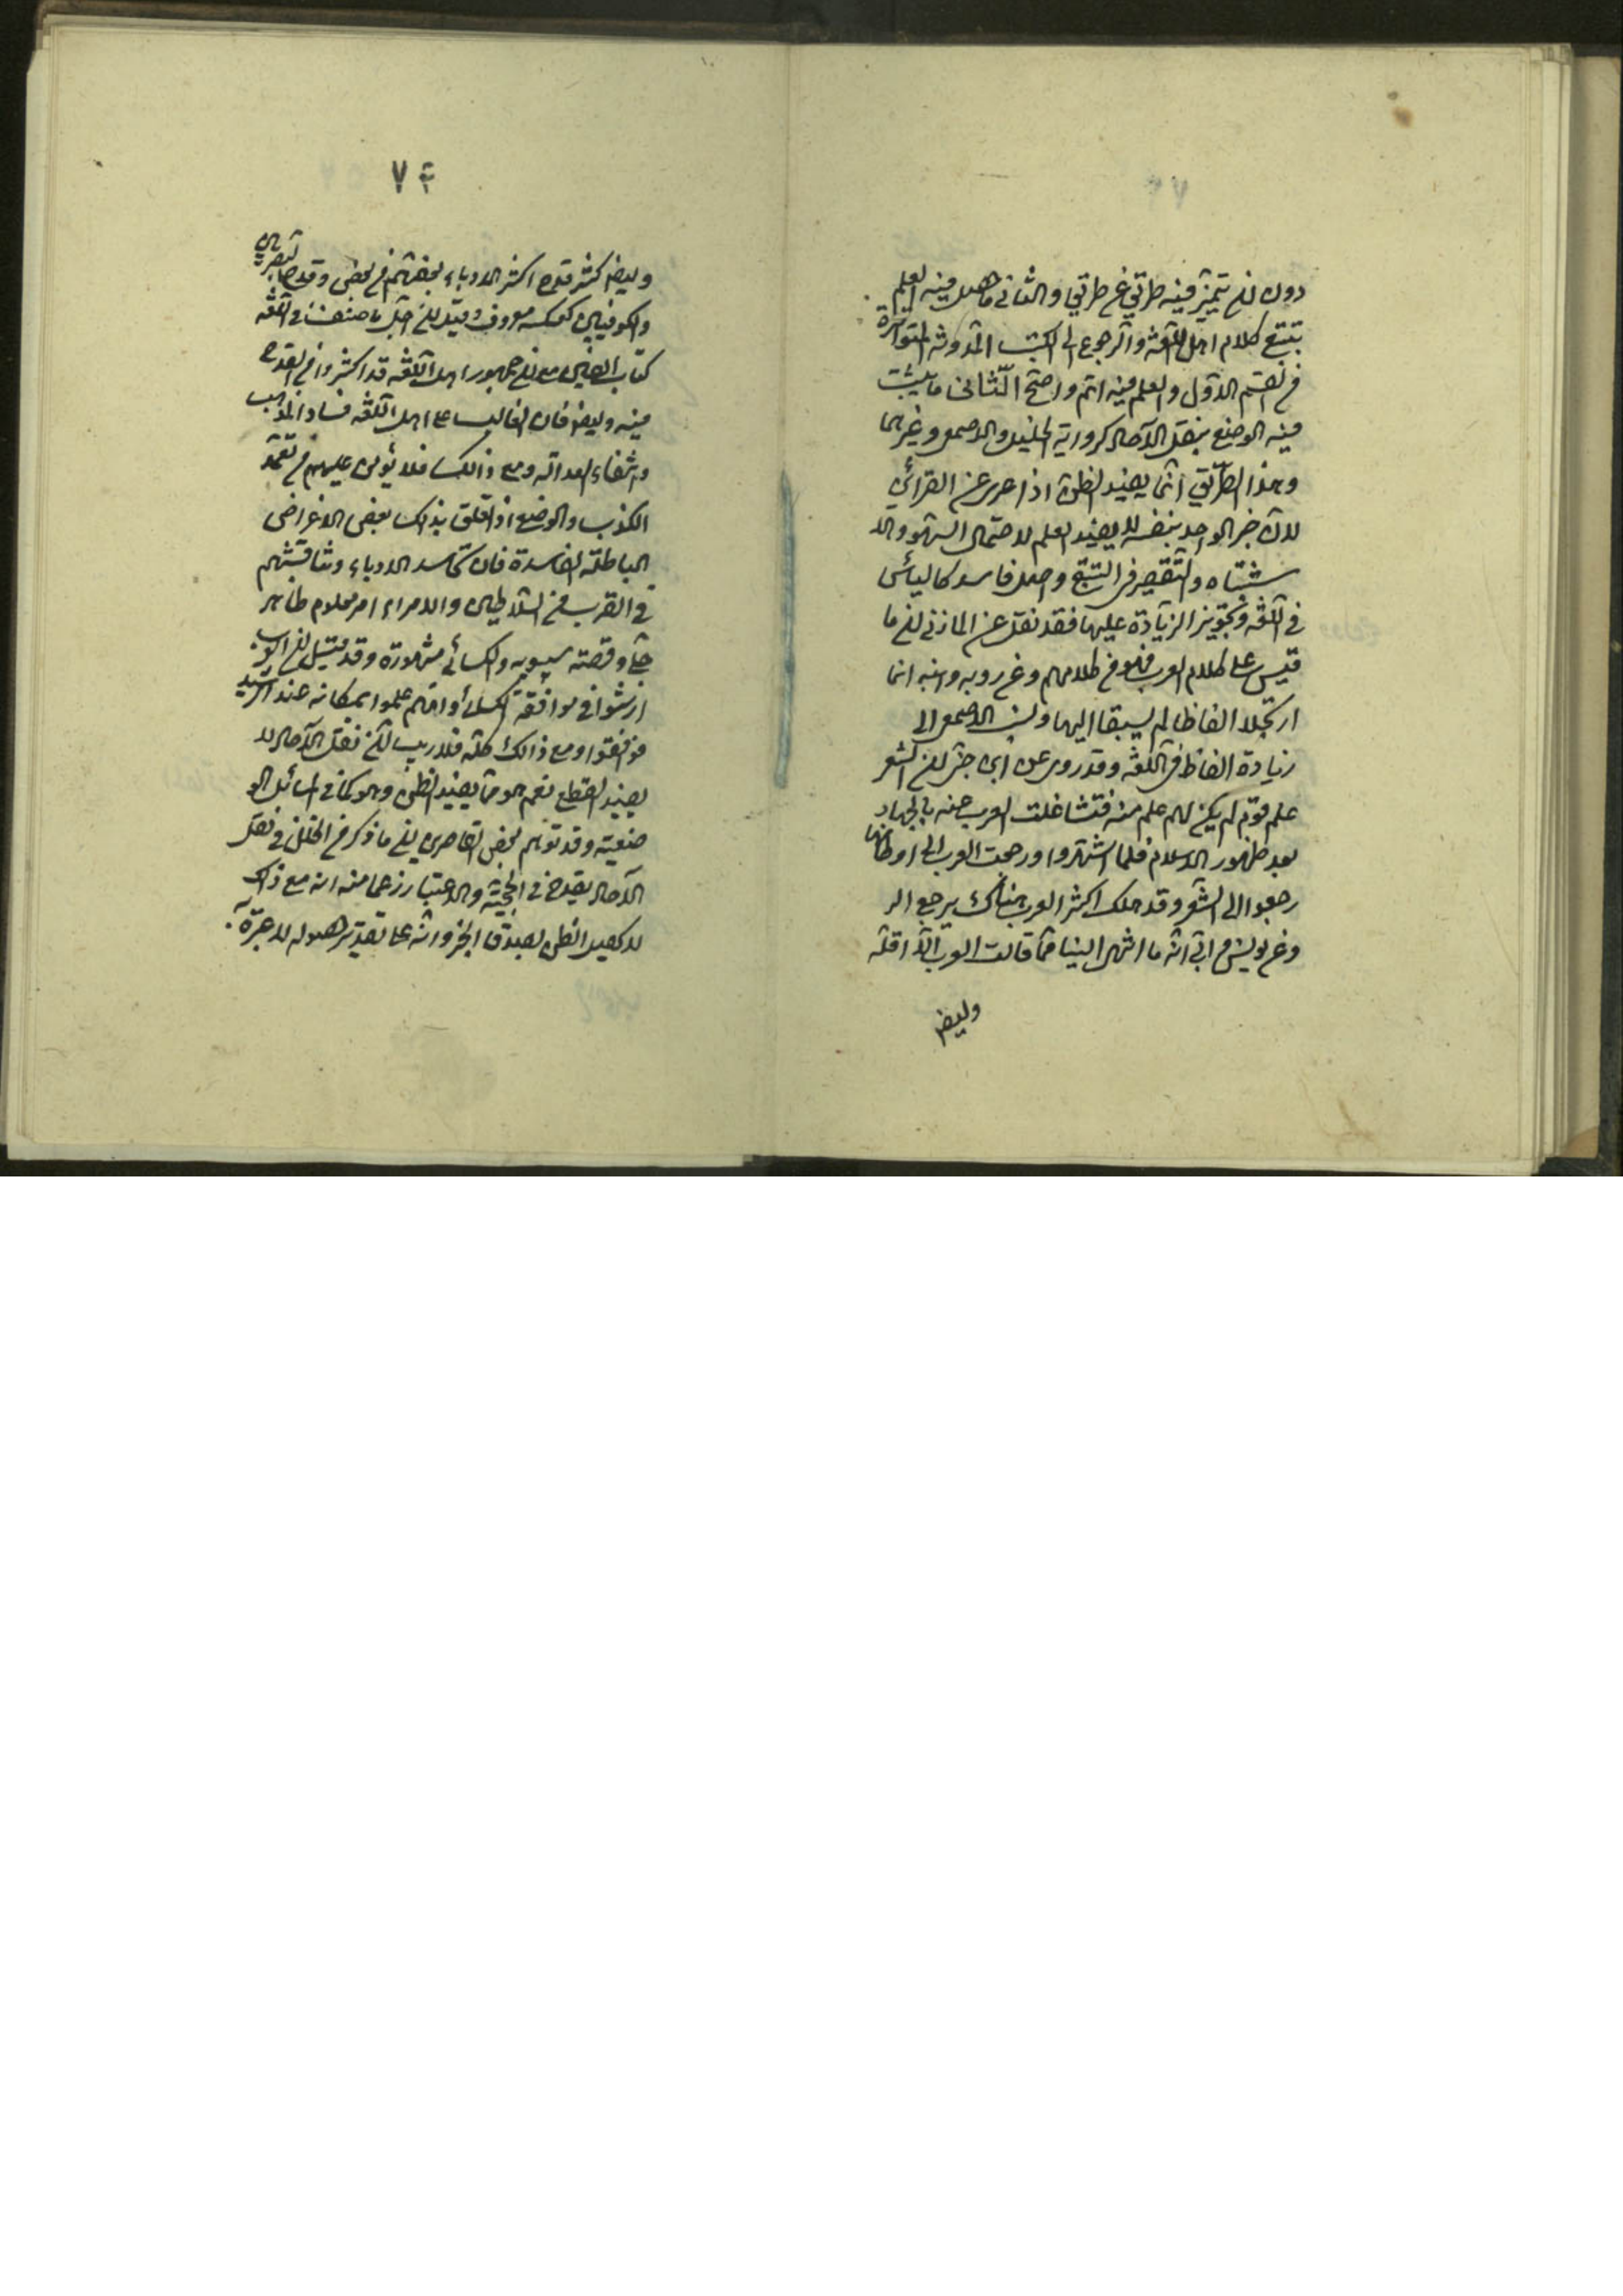 دون ان يتميز فيه طريق عن طريق والثاني ما حصل فيه العلم
بتتبع كلام اهل اللغة والرجوع الى الكتب المدونة المتواترة
من القسم الاول والعلم فيه اتم واضح الثاني ما يثبت
فيه الوضع بنقل الآحاد كرواية الخليل والاصمعي وغيرهما
وهذا الطريق انما يفيد الظن اذا عرى عن القرائن
لان خبر الواحد بنفسه لا يفيد العلم لاحتمال السهو والا
شتباه والتقصير في التتبع واصل فاسد كالقياس
في اللغة وتجويز الزيادة عليها فقد نقل عن المازني ان ما
قيس على كلام العرب فهو من كلامهم وعن روبه وابيه انهما
ارتجلا الفاظا لم يسبقا اليها ونسب الاصمعي الى
زيادة الفاظ في اللغة وقد روى عن ابن جني ان الشعر
علم قوم لم يكن لهم علم منه فتشاغلت العرب عنه بالجهاد
بعد ظهور الاسلام فلما اشتهروا ورجعت العرب الى اوطانها
رجعوا الى الشعر وقد هلك اكثر العرب هناك يرجع الى
وعن يونس انه ما انتهى الينا مما قالت العرب الا اقله
وايضا
٧٤
وايضا كثر قدح اكثر الادباء بعضهم في بعض وقدح البصريين
والكوفيين كعكسه معروف وقيل ان اجل ما صنف في اللغة
كتاب العين مع ان جمهور اهل اللغة قد اكثروا من القدح
فيه وايضا فان الغالب على اهل اللغة فساد المذهب
وانتفاء العدالة ومع ذالك فلا يؤمن عليهم من تعمد
الكذب والوضع اذا تعلق بذلك بعض الاغراض
الباطلة الفاسدة فان تحاسد الادباء ومنافستهم
في القرب من السلاطين والامراء امر معلوم ظاهر
جلي وقصة سيبويه والكسائي مشهورة وقد قيل ان العرب
ارتشوا في موافقة الكسائي او انهم علموا بمكانه عند الرشيد
فوافقوا ومع ذالك كله فلا ريب ان نقل الآحاد لا
يفيد القطع نعم هو مما يفيد الظن وهو كاف في المسائل الو
ضعية وقد توهم بعض القاصرين ان ما ذكر من الخلل في نقل
الآحاد يقدح في الحجية والاعتبار زعما منه انه مع ذلك
لا يحصل الظن بصدق الخبر وانه على تقدير حصوله لا عبرة به